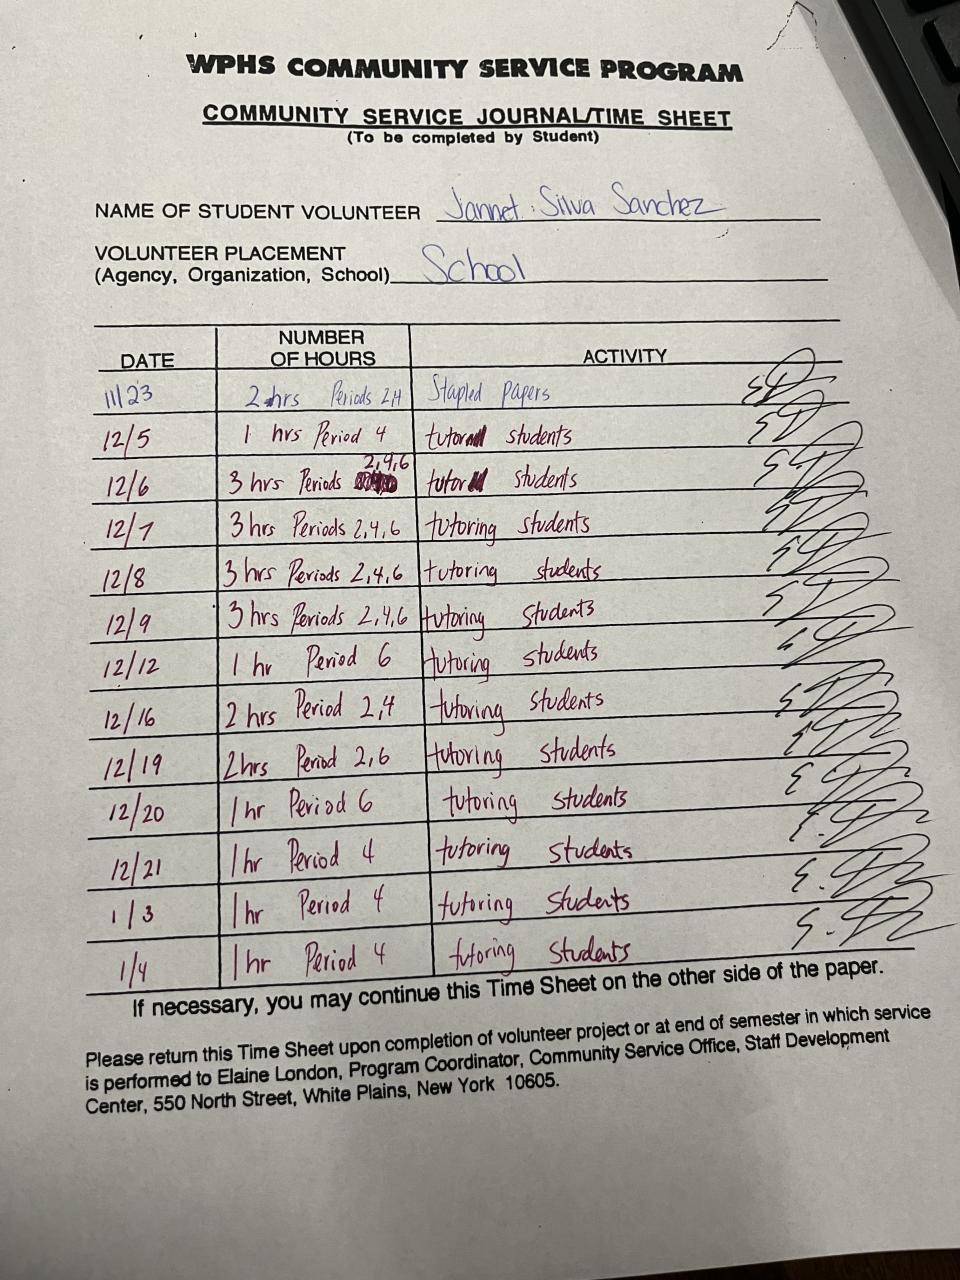 WPHS COMMUNITY SERVICE PROGRAM
COMMUNITY SERVICE JOURNAL/TIME SHEET
(To be completed by Student)
NAME OF STUDENT VOLUNTEER Jannet Silva Sanchez
VOLUNTEER PLACEMENT
(Agency, Organization, School) School
DATE NUMBER OF HOURS ACTIVITY
11/23 2 hrs Periods 2,4 Stapled papers
12/5 1 hrs Period 4 tutor students
12/6 3 hrs Periods 2,4,6 tutor students
12/7 3 hrs Periods 2,4,6 tutoring students
12/8 3 hrs Periods 2,4,6 tutoring students
12/9 3 hrs Periods 2,4,6 tutoring students
12/12 1 hr Period 6 tutoring students
12/16 2 hrs Period 2,4 tutoring students
12/19 2hrs Period 2,6 tutoring students
12/20 1 hr Period 6 tutoring students
12/21 1 hr Period 4 tutoring students
1/3 1 hr Period 4 tutoring students
1/4 1 hr Period 4 tutoring students
If necessary, you may continue this Time Sheet on the other side of the paper.
Please return this Time Sheet upon completion of volunteer project or at end of semester in which service
is performed to Elaine London, Program Coordinator, Community Service Office, Staff Development
Center, 550 North Street, White Plains, New York 10605.